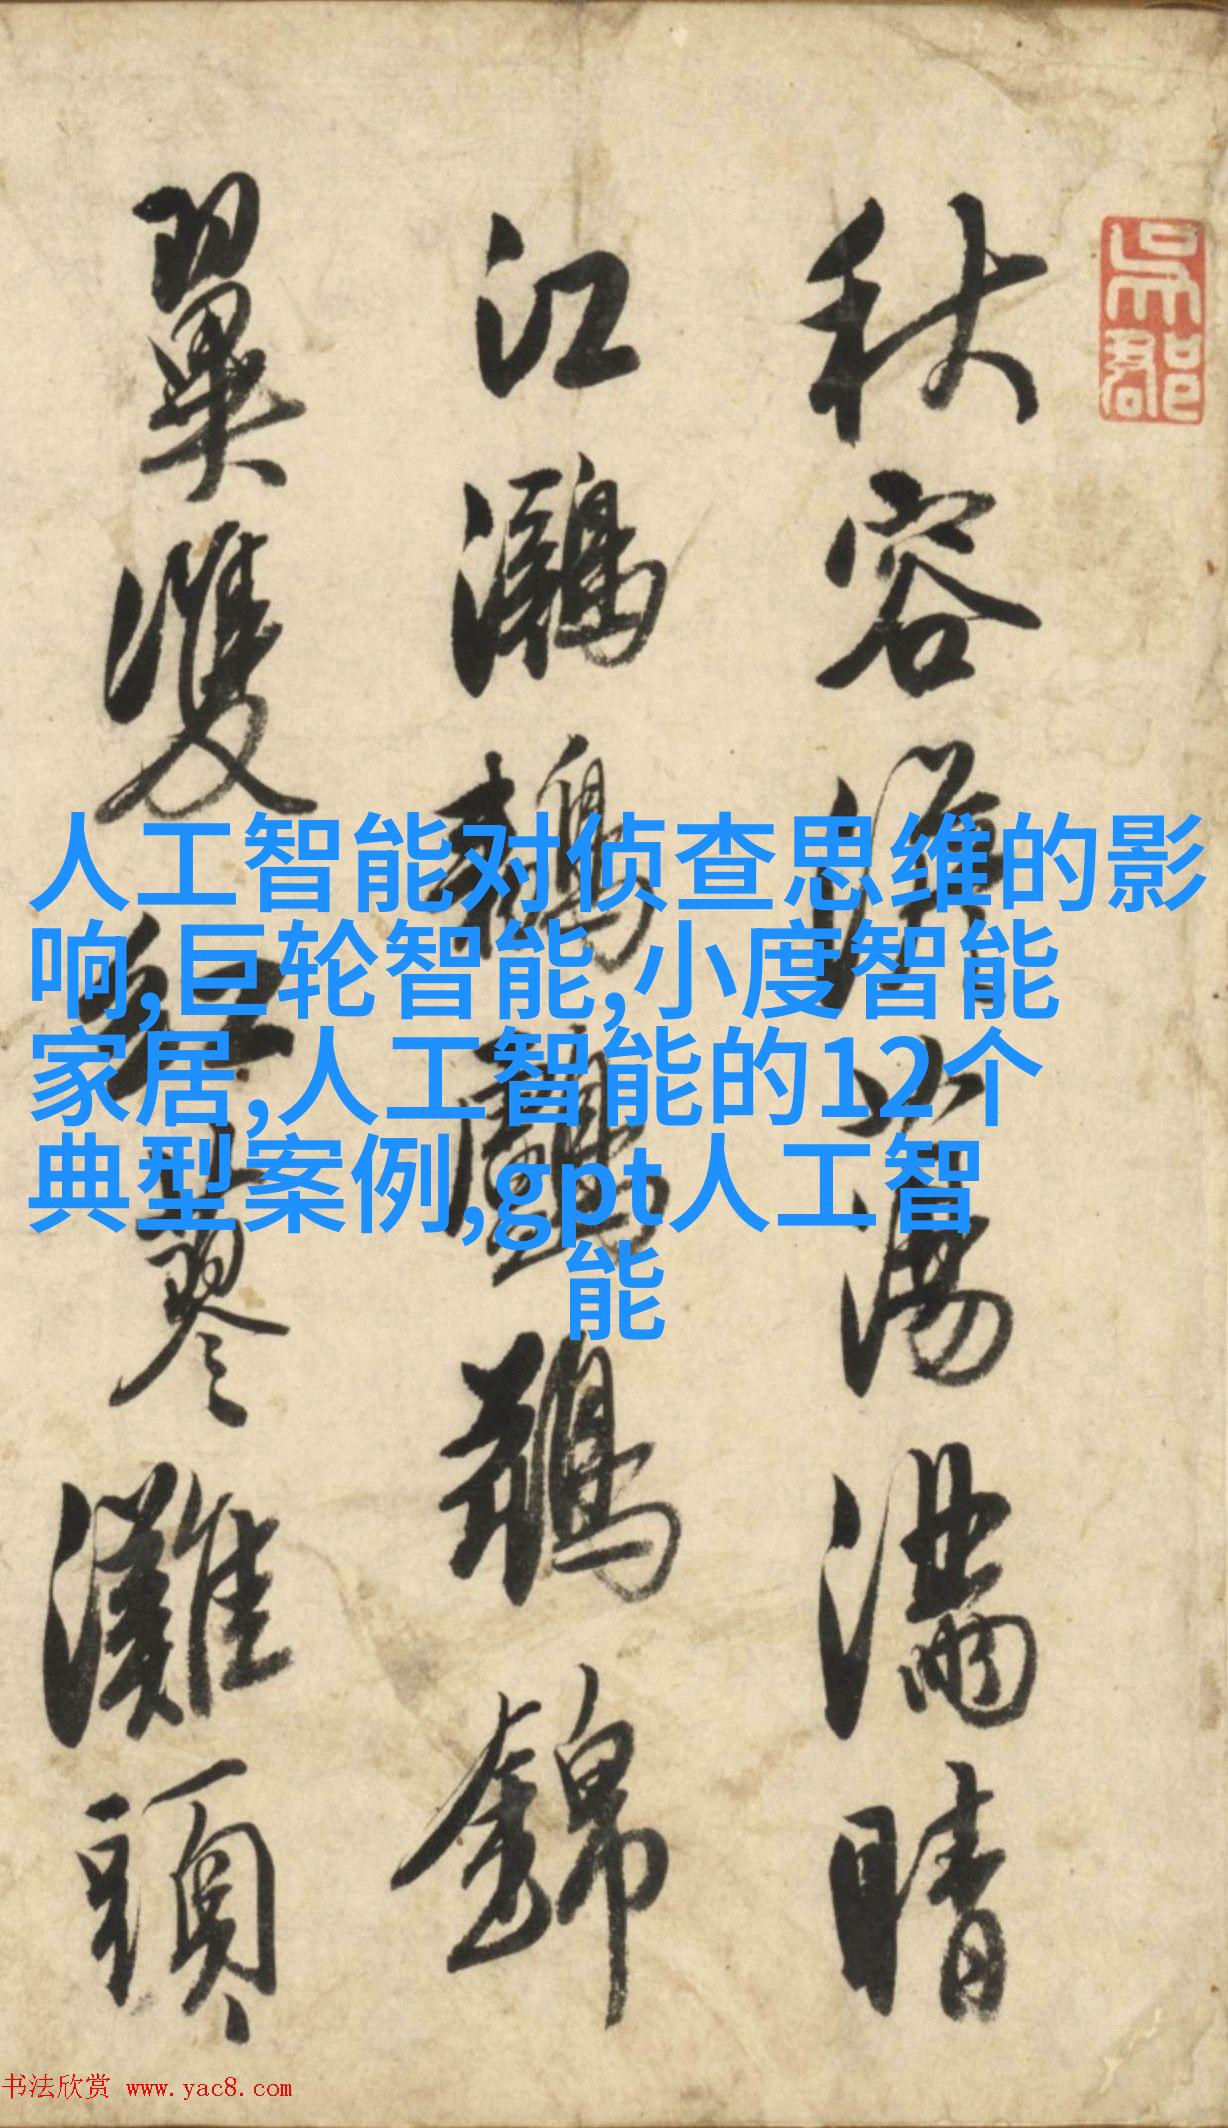 吳郡
秋容蕩滿晴
江鸂鶒鸕錦
翼雙紅蓼灘頭
人工智能对侦查思维的影
响,巨轮智能,小度智能
家居,人工智能的12个
典型案例,gpt人工智
能
书法欣赏 www.yac8.com